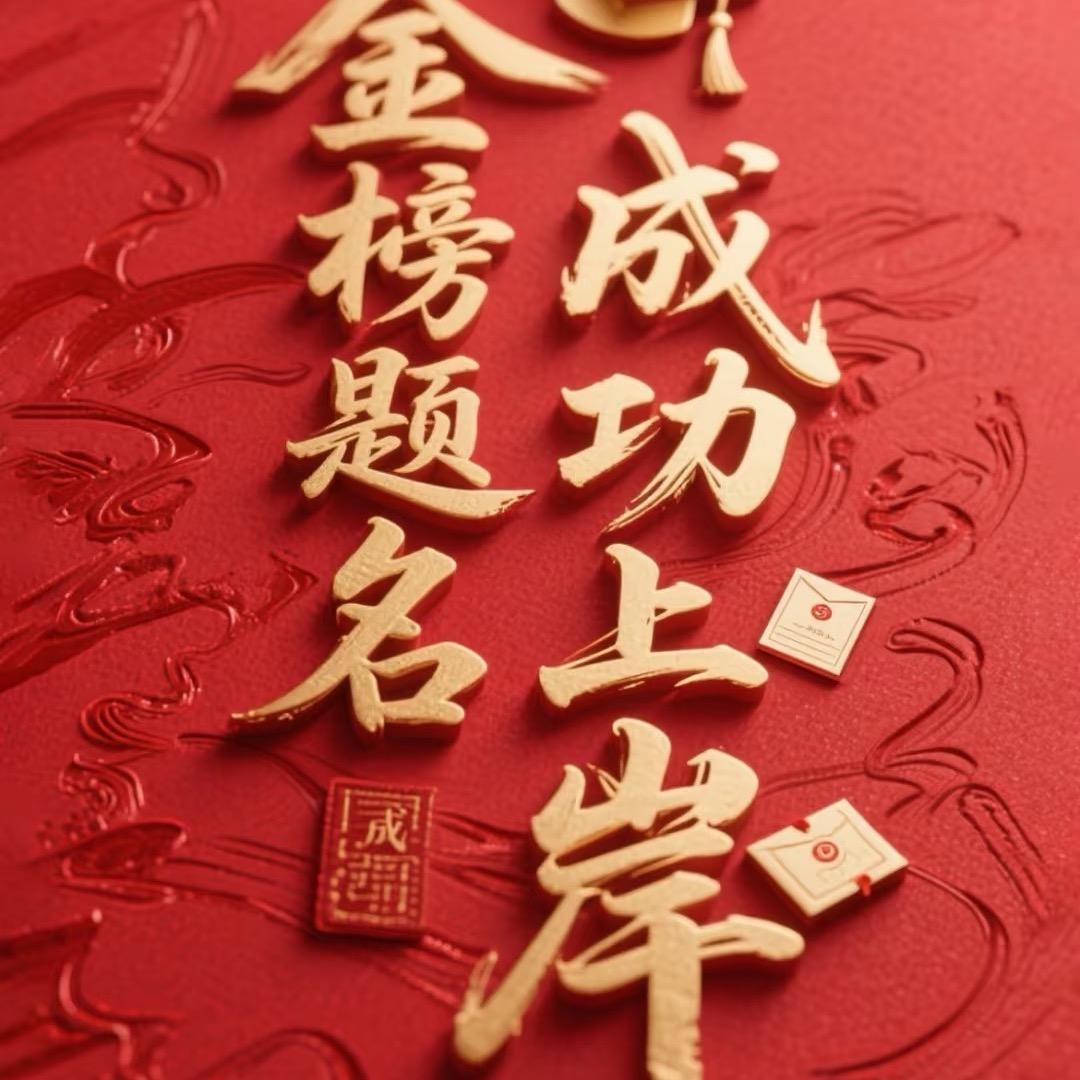 成功上岸
金榜题名
成